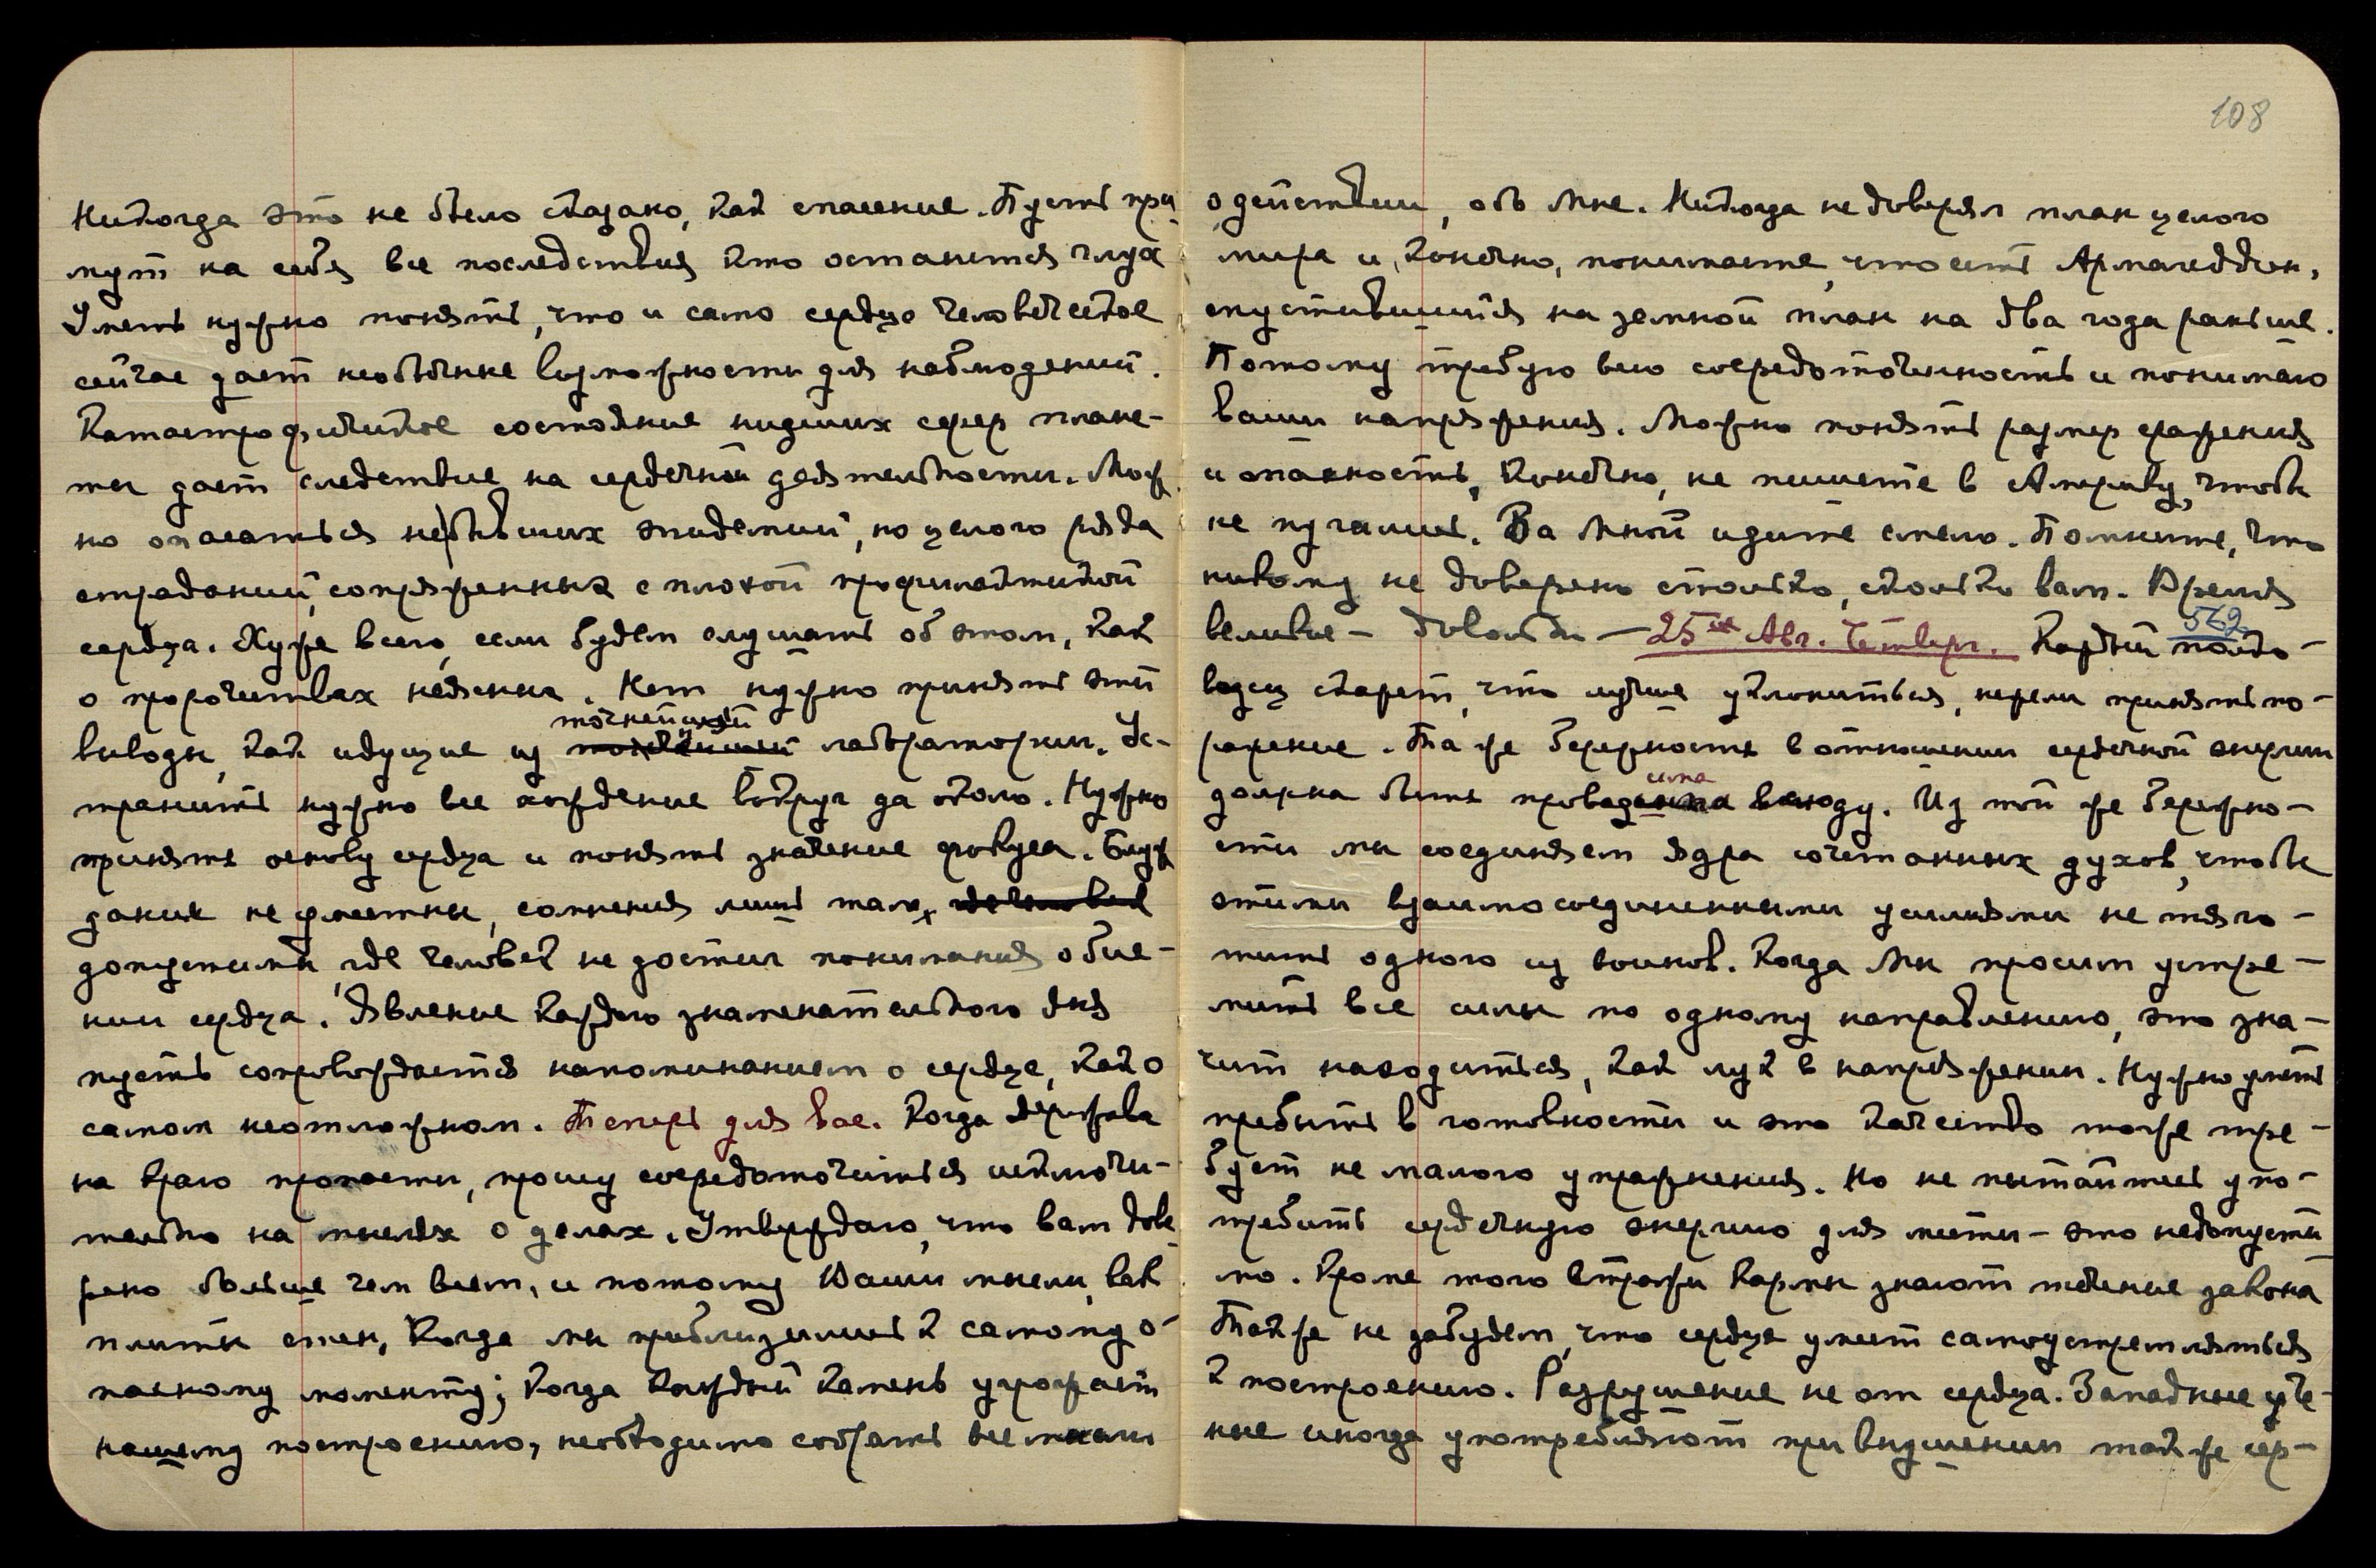 Никогда это не было сказано, как спасение. Пусть при-
мут на себя все последствия кто останется глух
Уметь нужно понять, что и само сердце человеческое
сейчас дает необычные возможности для наблюдений.
Катастрофическое состояние низших сфер плане-
ты дает следствие на сердечной деятельности. Мож
но опасаться не бывших эпидемий, но целого ряда
страданий, сопряженных с плохой профилактикой
сердца. Хуже всего, если будем слушать об этом, как
о пророчествах неясных. Нет нужно принять эти
точнейшей
выводы, как идущие из лаборатории. Ус-
транить нужно все хождение вокруг да около. Нужно
принять основу сердца и понять значение фокуса. Блуж
дания не уместны, сомнения лишь там, где человек
допустимы, где человек не достиг понимания о бие-
нии сердца. Явление каждого знаменательного дня
пусть сопровождается напоминанием о сердце, как о
самом неотложном. Теперь для вас. Когда держава
на краю пропасти, прошу сосредоточиться исключи-
тельно на мыслях о делах. Утверждаю, что вам дове-
рено больше чем всем, и потому Ваши мысли, как
плиты стен, Когда мы приблизились к самому о-
пасному моменту; Когда каждый камень угрожает
нашему построению, необходимо собрать все мысли
108
о действии, об Мне. Никогда не доверял план целого
мира и, конечно, понимаете, что есть Армагеддон,
опустившийся на земной план на два года раньше.
Потому требую всю сосредоточенность и понимаю
ваши напряжения. Можно понять размер сражения
и опасность, Конечно, не пишите в Америку, чтобы
не пугались. За Мной идите смело. Помните, что
никому не доверено столько, сколько вам. Время
великое - довольно - 25ое Авг. Четверг. 562 Каждый полко-
водец скажет, что лучше уклониться, нежели принять по-
ражение. Та же бережность в отношении сердечной энергии
сима
должна быть проведена всюду. Из той же бережно-
сти мы соединяем ядра сочетанных духов, чтобы
этими взаимосоединенными усилиями не тяго-
тить одного из воинов. Когда Мы просим устре-
мить все силы по одному направлению, это зна-
чит находиться, как лук в напряжении. Нужно уметь
пребыть в готовности и это качество тоже тре-
бует не малого упражнения. Но не пытайтесь упо-
требить сердечную энергию для мести - это недопусти
мо. Кроме того Стражи Кармы знают течение закона
Также не забудем, что сердце умеет самоустремляться
к построению. Разрушение не от сердца. Западные уче-
ные иногда употребляют при внушении также сер-